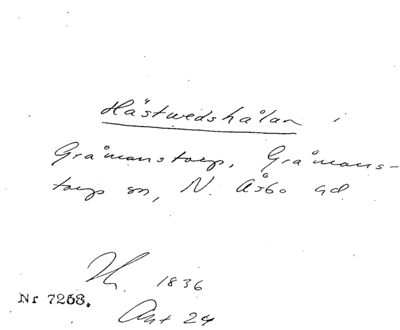 Hästvedshålan i
Gråmanstorp, Gråmans-
torp sn, N. Åsbo hd
1836
Nr 7258.
Akt 24